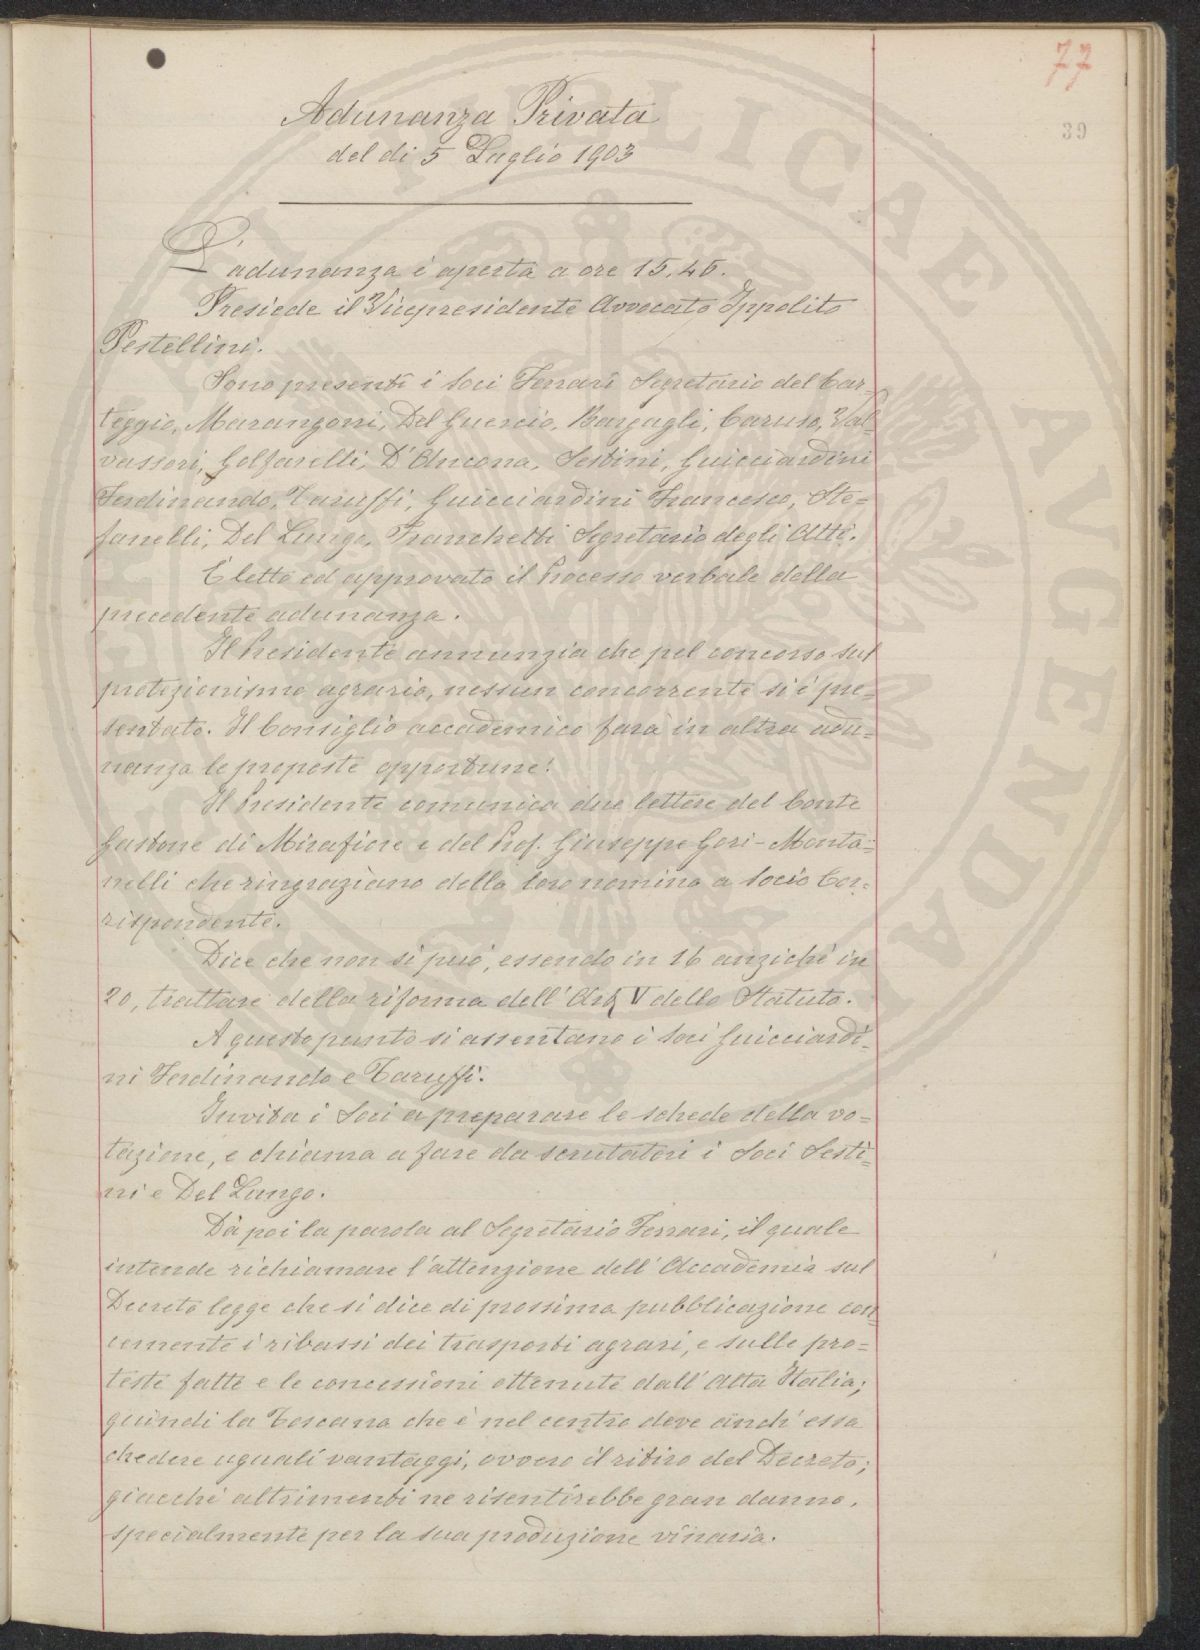 77
39
Adunanza Privata
del di 5 Luglio 1903
L'adunanza è aperta a ore 15,45.
Presiede il Vicepresidente Avvocato Ippolito
Pestellini.
Sono presenti i Soci Ferrari Segretario del Car=
teggio, Marangoni, Del Guercio, Bargagli, Caruso, Val=
vassori, Golfarelli, D'Ancona, Sestini, Guicciardini
Ferdinando, Taruffi, Guicciardini Francesco, Ste=
fanelli, Del Lungo, Franchetti Segretario degli Atti.
È letto ed approvato il Processo verbale della
precedente adunanza.
Il Presidente annunzia che pel concorso sul
protezionismo agrario, nessun concorrente si è pre=
sentato. Il Consiglio accademico farà in altra adu=
nanza le proposte opportune.
Il Presidente comunica due lettere del Conte
Gastone di Mirafiore e del Prof. Giuseppe Gori-Monta=
nelli che ringraziano della loro nomina a Socio Cor=
rispondente.
Dice che non si può, essendo in 16 anzichè in
20, trattare della riforma dell'Art V dello Statuto.
A questo punto si assentano i Soci Guicciardi=
ni Ferdinando e Taruffi.
Invita i Soci a preparare le schede della vo=
tazione, e chiama a fare da scrutatori i Soci Sesti=
ni e Del Lungo.
Dà poi la parola al Segretario Ferrari, il quale
intende richiamare l'attenzione dell'Accademia sul
Decreto legge che si dice di prossima pubblicazione con=
cernente i ribassi dei trasporti agrari, e sulle pro=
teste fatte e le concessioni ottenute dall'Alta Italia;
quindi la Toscana che è nel centro deve anch'essa
chiedere uguali vantaggi, ovvero il ritiro del Decreto;
giacchè altrimenti ne risentirebbe gran danno,
specialmente per la sua produzione vinaria.